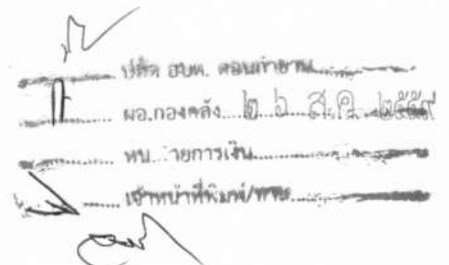 ปลัด อบต. ดอนกำยาน
ผอ.กองคลัง ๒ ๖ ส.ค. ๒๕๕๙
หน. ่ายการเงิน
เจ้าหน้าที่พิมพ์/ทาน